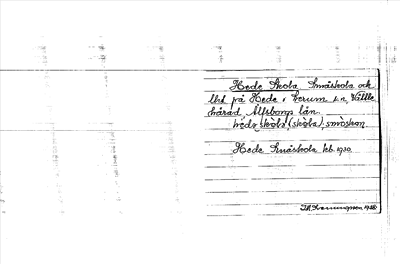 Hede Skola, Småskola och
lht på Hede i Lerum s:n, Vättle
härad, Älfsborgs län.
hede skola (skòla), småskon
Hede Småskola kb. 1930.
1928